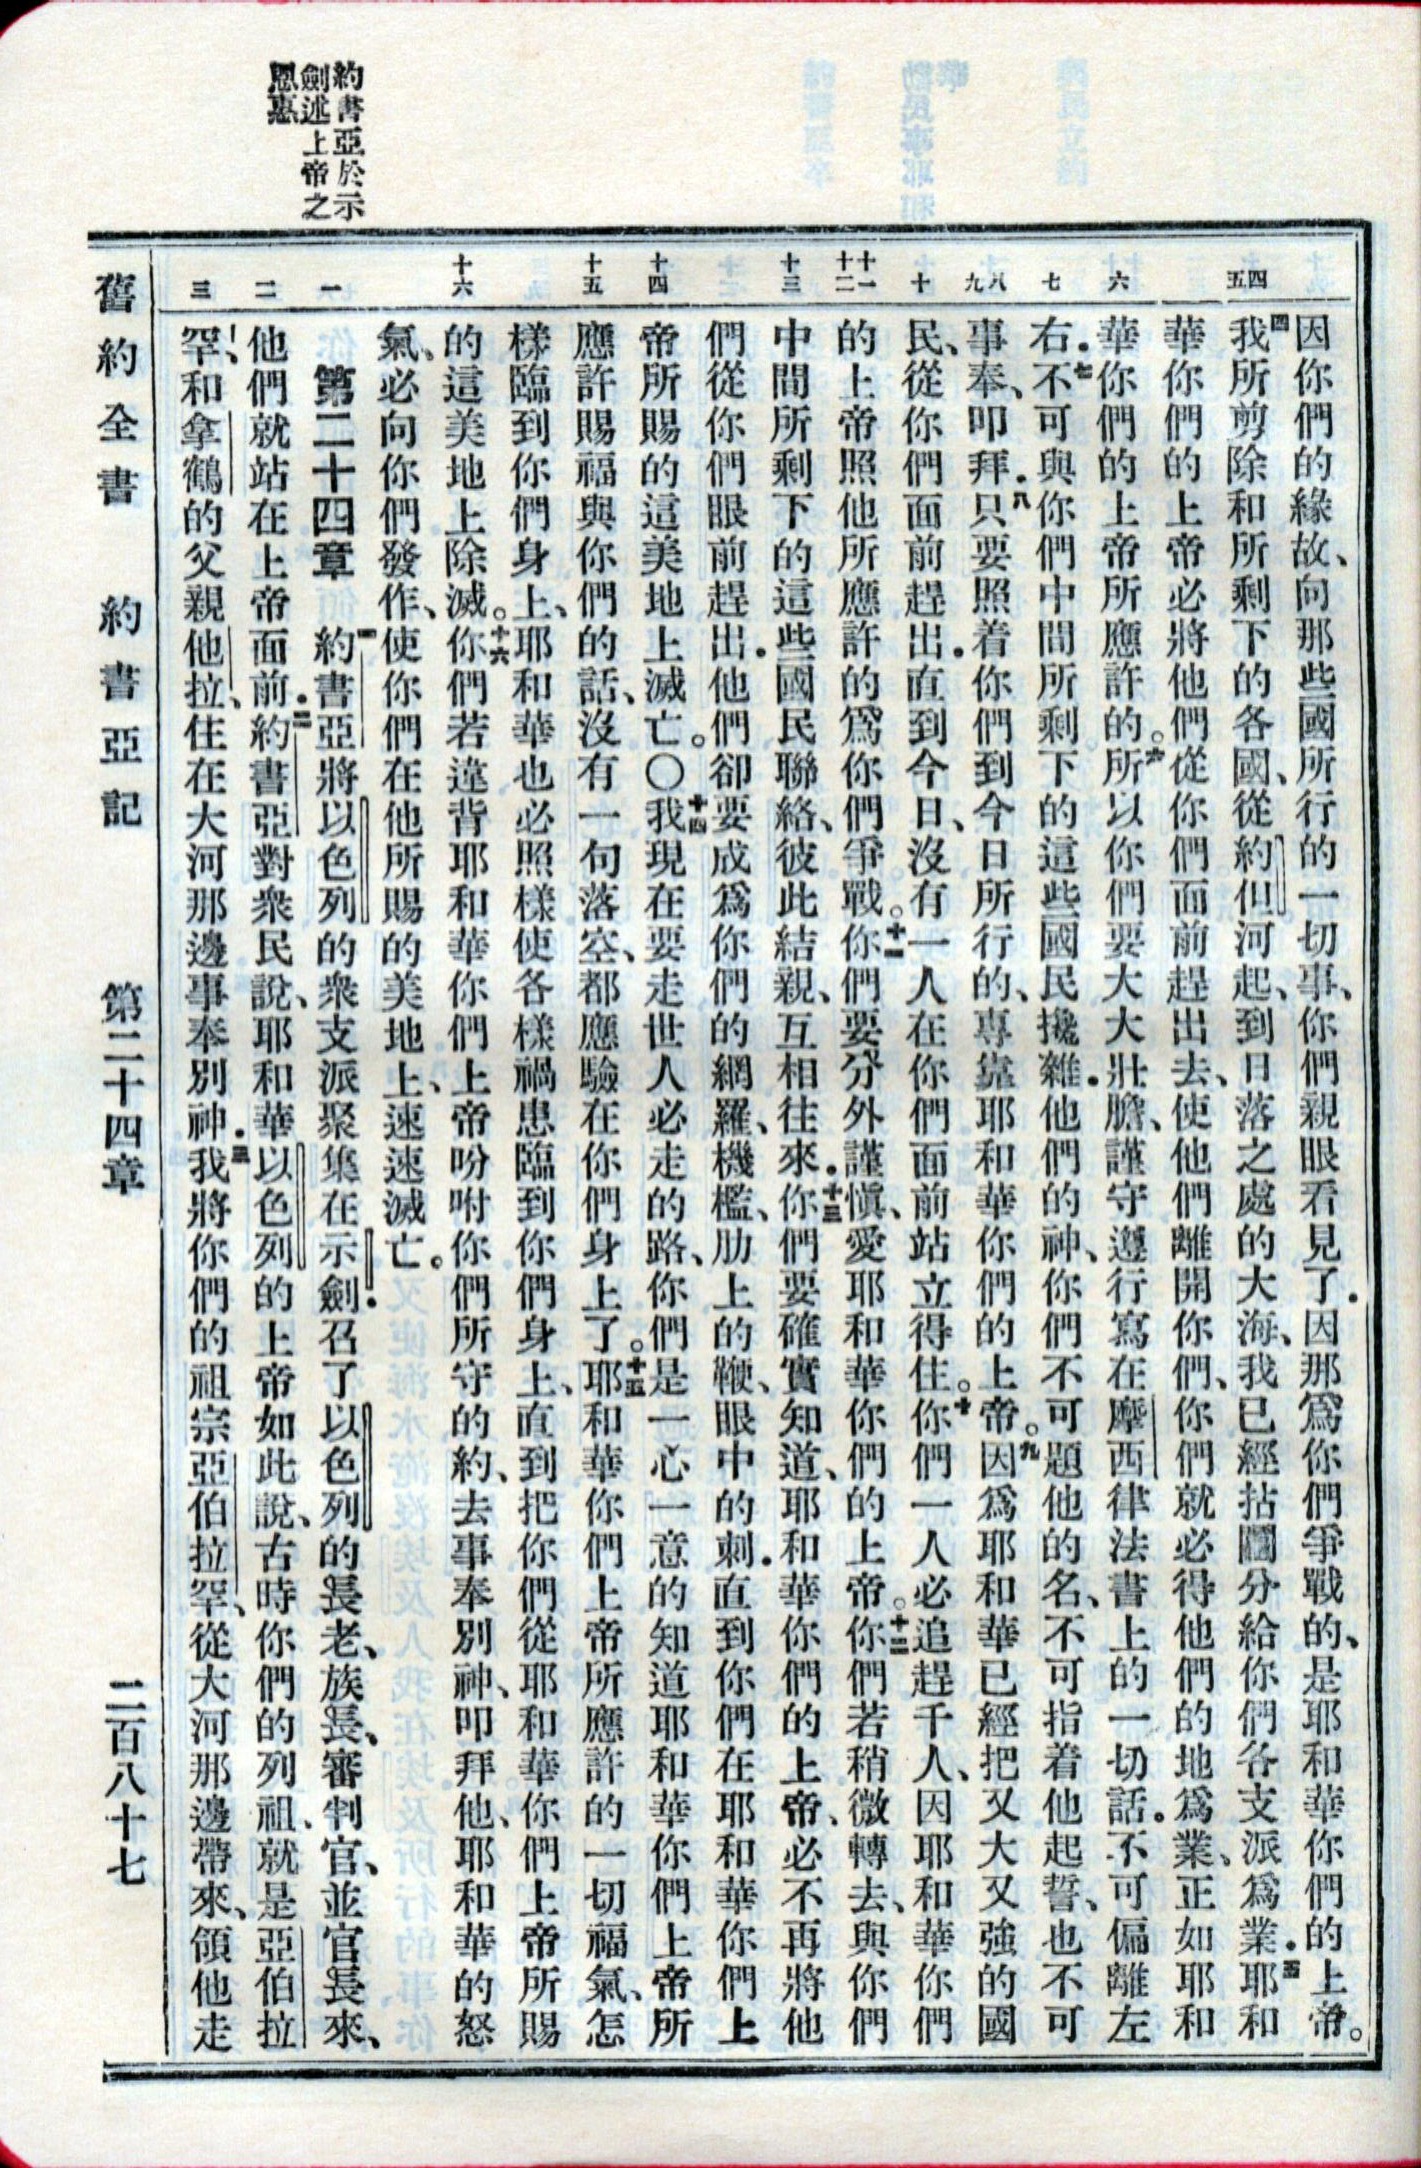 約書亞於示
劍述上帝之
恩惠
四
五
六
七
八
九
十
十一
十二
十三
十四
十五
十六
一
二
三
因你們的緣故、向那些國所行的一切事、你們親眼看見了．因那爲你們爭戰的、是耶和華你們的上帝。
四我所剪除和所剩下的各國、從約但河起、到日落之處的大海、我已經拈鬮分給你們各支派爲業．五耶和
華你們的上帝必將他們從你們面前趕出去、使他們離開你們、你們就必得他們的地爲業、正如耶和
華你們的上帝所應許的。六所以你們要大大壯膽、謹守遵行寫在摩西律法書上的一切話．不可偏離左
右．七不可與你們中間所剩下的這些國民攙雜．他們的神、你們不可題他的名、不可指着他起誓、也不可
事奉、叩拜．八只要照着你們到今日所行的、專靠耶和華你們的上帝。九因爲耶和華已經把又大又強的國
民、從你們面前趕出．直到今日、沒有一人在你們面前站立得住。十你們一人必追趕千人、因耶和華你們
的上帝照他所應許的爲你們爭戰。十一你們要分外謹愼、愛耶和華你們的上帝。十二你們若稍微轉去、與你們
中間所剩下的這些國民聯絡、彼此結親、互相往來．十三你們要確實知道、耶和華你們的上帝、必不再將他
們從你們眼前趕出．他們卻要成爲你們的網羅、機檻、肋上的鞭、眼中的刺．直到你們在耶和華你們上
帝所賜的這美地上滅亡。○十四我現在要走世人必走的路、你們是一心一意的知道耶和華你們上帝所
應許賜福與你們的話、沒有一句落空、都應驗在你們身上了。十五耶和華你們上帝所應許的一切福氣、怎
樣臨到你們身上、耶和華也必照樣使各樣禍患臨到你們身上、直到把你們從耶和華你們上帝所賜
的這美地上除滅。十六你們若違背耶和華你們上帝吩咐你們所守的約、去事奉別神、叩拜他、耶和華的怒
氣、必向你們發作、使你們在他所賜的美地上、速速滅亡。
第二十四章　一約書亞將以色列的衆支派聚集在示劍．召了以色列的長老、族長、審判官、並官長來、
他們就站在上帝面前．二約書亞對衆民說、耶和華以色列的上帝如此說、古時你們的列祖、就是亞伯拉
罕、和拿鶴的父親他拉、住在大河那邊事奉別神．三我將你們的祖宗亞伯拉罕、從大河那邊帶來、領他走
舊約全書　約書亞記　第二十四章　二百八十七